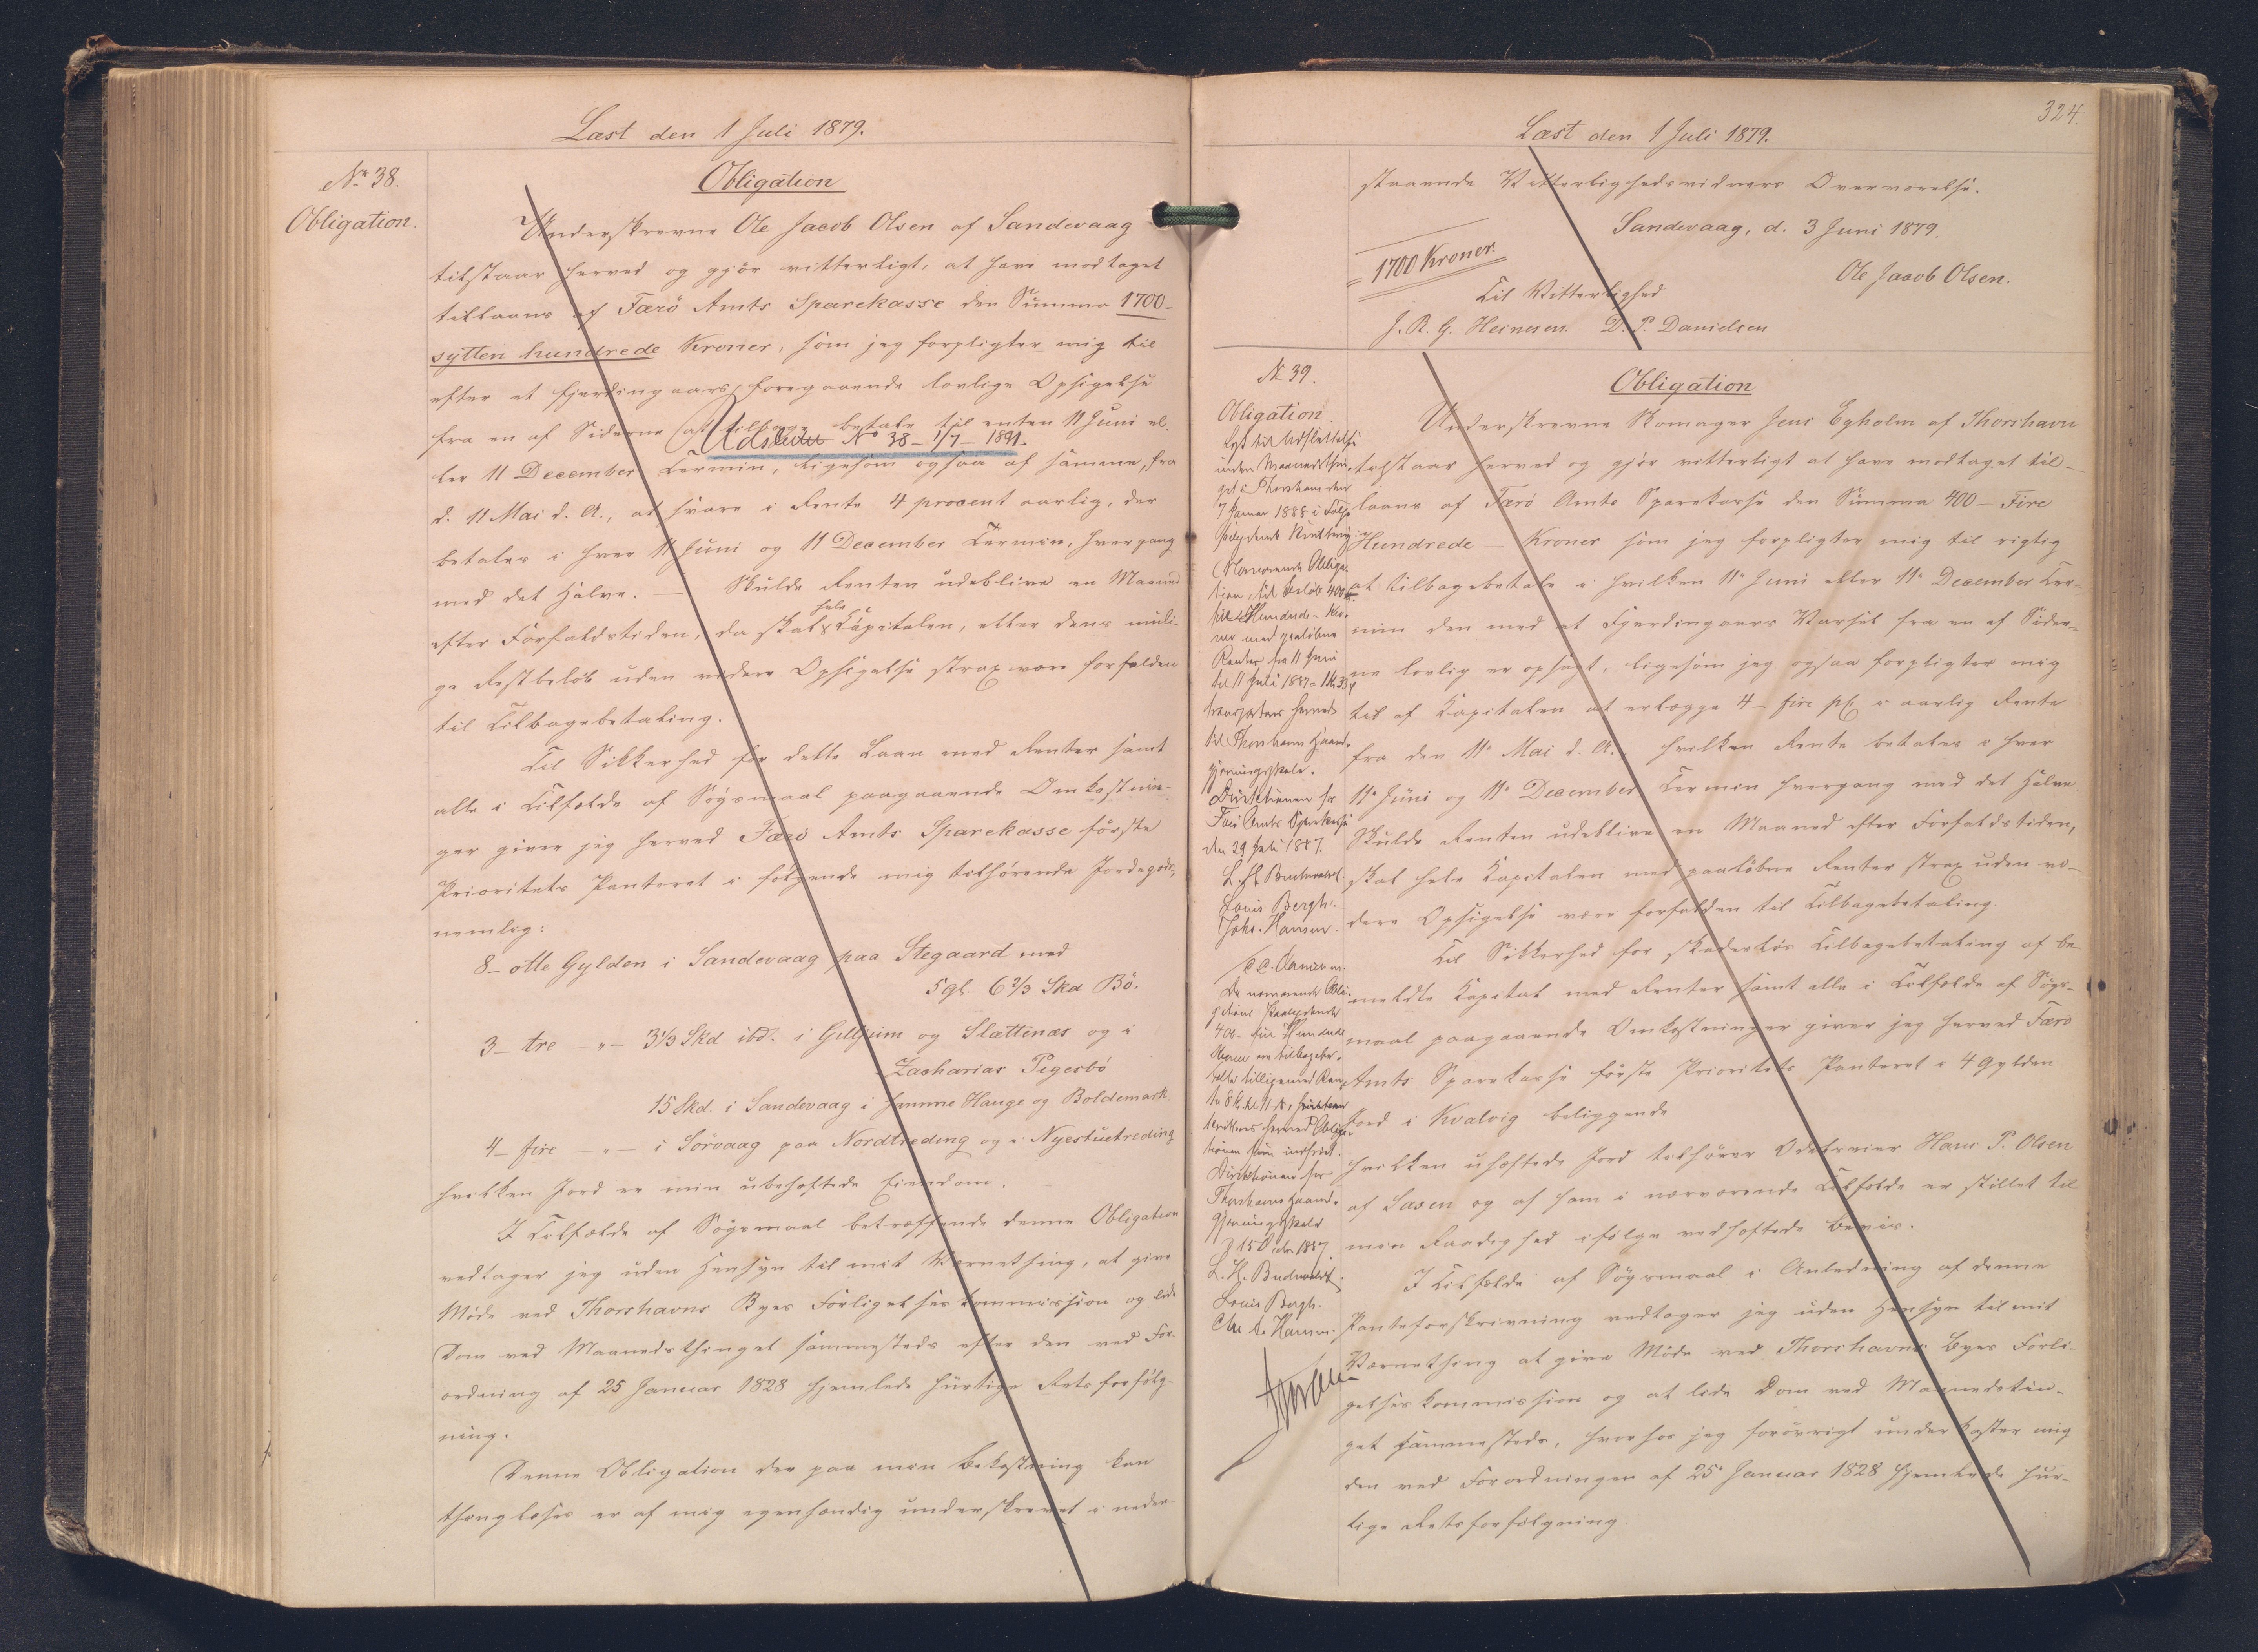 Læst den 1 Juli 1879.
Nr 38.
Obligation.
Obligation
Underskrevne Ole Jacob Olsen af Sandevaag
tilstaar herved og gjør vitterligt, at have modtaget
tillaans af Færö Amts Sparekasse den Summa 1700-
sytten hundrede Kroner, som jeg forpligter mig til
efter et fjerdingaars foregaaende lovlige Opsigelse
fra en af Siderne at tilbage betale til enten 11 Juni el-
Udslettet No 38 - 1/7 - 1891.
ler 11 December Termin, ligesom ogsaa af samme, fra
d. 11 Mai d. A., at svare i Rente 4 procent aarlig, der
betales i hver 11 Juni og 11 December Termin, hvergang
med det Halve. — Skulde Renten udeblive en Maaned
efter Forfaldstiden, da skal hele Capitalen, eller dens muli-
ge Restbeløb uden videre Opsigelse strax være forfalden
til Tilbagebetaling.
Til Sikkerhed for dette Laan med Renter samt
alle i Tilfælde af Søgsmaal paagaaende Omkostnin-
ger giver jeg herved Færö Amts Sparekasse første
Prioritets Panteret i følgende mig tilhørende Jordegods,
nemlig:
8- otte Gylden i Sandevaag paa Stegaard med
5 gl. 6 2/3 Skd Bö.
3- tre -"- 3 1/3 Skd ibd. i Giljuim og Slættenæs og i
Zacharias Pigersbö
15 Skd. i Sandevaag i Hamme Hauge og Boldemark.
4- fire -"- i Sörvaag paa Nordtreding og i Nyestuetreding
hvilken Jord er min ubehæftede Eiendom.
I Tilfælde af Søgsmaal betræffende denne Obligation
vedtager jeg uden Hensyn til mit Værnething, at give
Møde ved Thorshavns Byes Forligelseskommission og lide
Dom ved Maanedsthinget sammesteds efter den ved For-
ordning af 25 Januar 1828 hjemlede hurtige Retsforfølg-
ning.
Denne Obligation der paa min Bekostning kan
thinglæses er af mig egenhændig underskrevet i neden-
324.
Læst den 1 Juli 1879.
staaende Vitterlighedsvidners Overværelse.
Sandevaag, d. 3 Juni 1879.
1700 Kroner.
Ole Jacob Olsen.
Til Vitterlighed
J. R. G. Heinesen. D. P. Danielsen
No 39.
Obligation
Obligation
Underskrevne Skomager Jens Egholm af Thorshavn
tilstaar herved og gjør vitterligt at have modtaget til-
laans af Færö Amts Sparekasse den Summa 400 - Fire
Hundrede - Kroner som jeg forpligter mig til rigtig
at tilbagebetale i hvilken 11te Juni eller 11te December Ter-
min den med et Fjerdingaars Varsel fra en af Sider-
ne lovlig er opsagt, ligesom jeg ogsaa forpligter mig
til af Kapitalen at erlægge 4 - fire pCt i aarlig Rente
fra den 11te Mai d. A., hvilken Rente betales i hver
11te Juni og 11te December Termin hvergang med det Halve.
Skulde Renten udeblive en Maaned efter Forfaldstiden,
skal hele Kapitalen med paaløbne Renter strax uden vi-
dere Opsigelse være forfalden til Tilbagebetaling.
Til Sikkerhed for skadesløs Tilbagebetaling af be-
meldte Kapital med Renter samt alle i Tilfælde af Søgs-
maal paagaaende Omkostninger giver jeg herved Færö
Amts Sparekasse første Prioritets Panteret i 4 Gylden
Jord i Kvalvig beliggende
hvilken uhæftede Jord tilhører Odelseier Hans P. Olsen
af Saxen og af ham i nærværende Tilfælde er stillet til
min Raadighed ifølge vedhæftede Bevis.
I Tilfælde af Søgsmaal i Anledning af denne
Panteforskrivning vedtager jeg uden Hensyn til mit
Værnething at give Møde ved Thorshavns Byes Forli-
gelseskommission og at lide Dom ved Maanedsthin-
get sammesteds, hvorhos jeg forøvrigt underkaster mig
den ved Forordningen af 25de Januar 1828 hjemlede hur-
tige Retsforfølgning.
Lyst til Udslettelse
under Maanedsthin-
get i Thorshavn den
7 Januar 1888 i Følge
paategnet Kvittering:
Nærværende Obliga-
tion, stor Beløb 400 kr.
fire Hundrede - Kro-
ner med paaløbne
Renter fra 11 Juni
til 11 Juli 1887
transporteres herved
til Thorshavn Haand-
gjerningsskole.
Direktionen for
Færö Amts Sparekasse
den 29 Juli 1887.
Louis Bergh.
Johs. Hansen.
Da nærværende Obli-
gations paalydende
400 - fire Hundrede
Kroner er tilbagebe-
talte tilligemed Ren-
Direktionen for
Thorshavn Haand-
gjerningsskole
Louis Bergh.